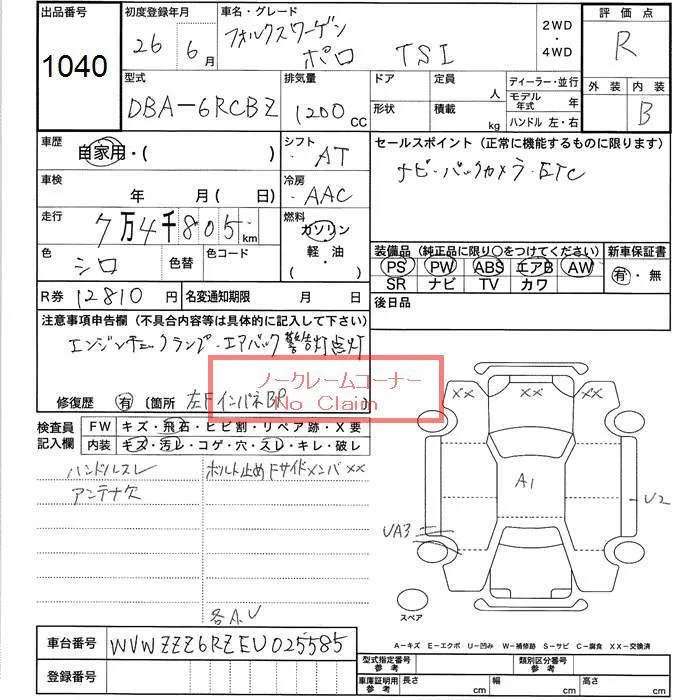 出品番号
1040
初度登録年月
26 6月
車名・グレード
フォルクスワーゲン
ポロ TSI
2WD
・
4WD
評価点
R
外装 内装
B
型式
DBA-6RCBZ
排気量
1200 CC
ドア
形状
定員
人
積載
kg
ディーラー・並行
モデル年式 年
ハンドル 左・右
車歴
自家用・( )
シフト
・AT
セールスポイント(正常に機能するものに限ります)
ナビ・バックカメラ・ETC
車検
年 月( 日)
冷房
・AAC
走行
7万4千805km
燃料
ガソリン
軽・油
( ・ )
色
シロ
色替
色コード
装備品(純正品に限り○をつけてください)
PS PW ABS エアB AW
SR ナビ TV カワ
新車保証書
有・無
R券 12810 円
名変通知期限 月 日
後日品
注意事項申告欄(不具合内容等は具体的に記入して下さい)
エンジンチェックランプ・エアバック警告灯点灯
ノークレームコーナー
No Claim
修復歴 有 〔箇所 左Fインパネ BP 〕
検査員記入欄
FW キズ・飛石・ヒビ割・リペア跡・X要
内装 キズ・汚レ・コゲ・穴・スレ・キレ・破レ
ハンドルスレ
アンテナ欠
ボルト止めFサイドメンバ XX
各A.U
XX XX XX
A1
U2
UA3
スペア
A-キズ E-エクボ U-凹み W-補修跡 S-サビ C-腐食 XX-交換済
車台番号
WVWZZZ6RZEU025585
登録番号
型式指定番号 参考
類別区分番号 参考
車庫証明用 参考
長さ cm
幅 cm
高さ cm